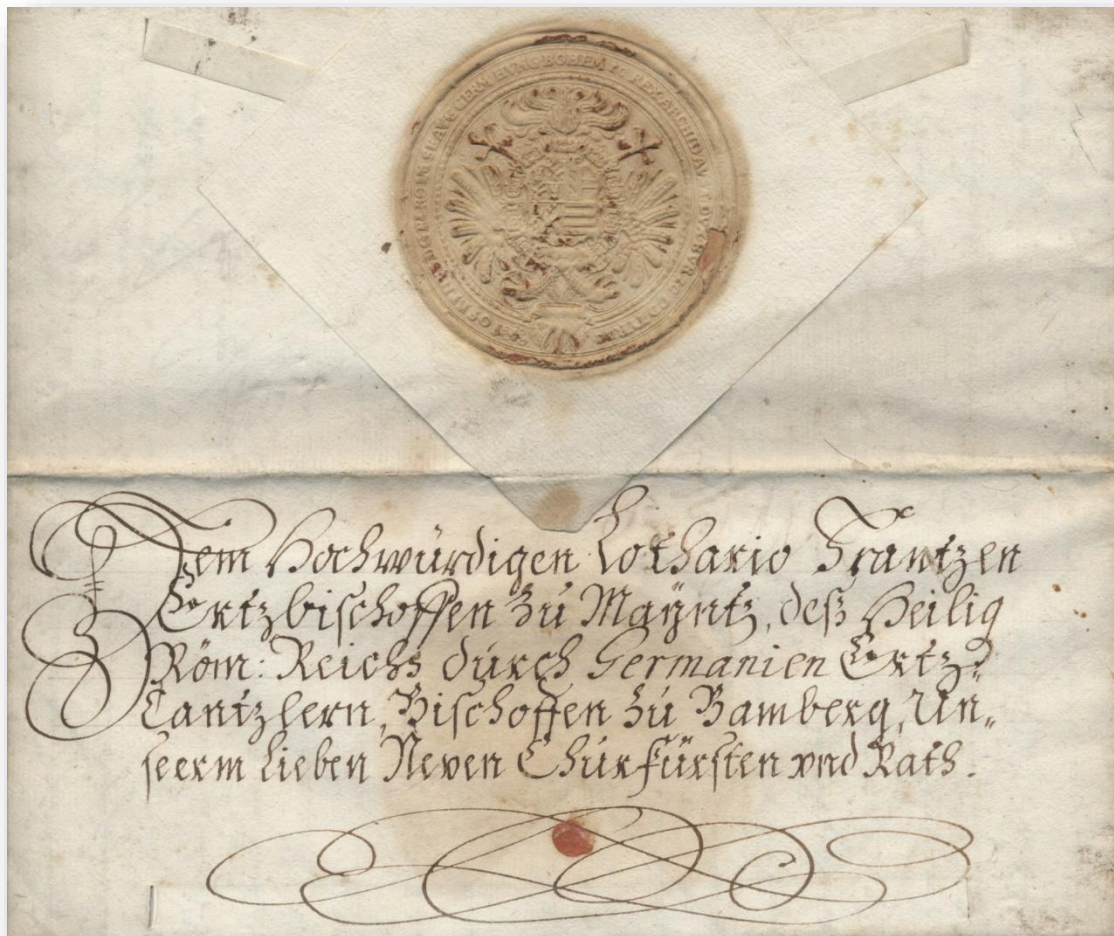 GERM HVNG BOHEM REX ARCHIDVX
Dem Hochwürdigen Lothario Frantzen
Ertzbischoffen zu Mayntz, deß Heilig
Röm: Reichs durch Germanien Ertz=
Cantzlern, Bischoffen zu Bamberg, Un„
serm lieben Neven Churfürsten vnd Rath.